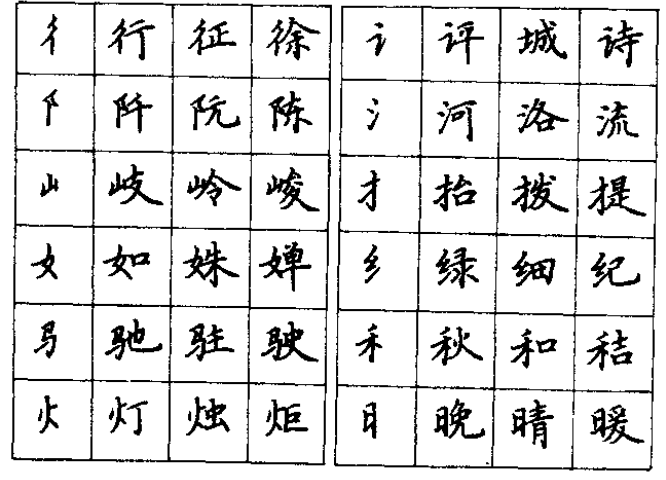 彳 行 征 徐 讠 评 城 诗
阝 阡 阮 陈 氵 河 洛 流
山 岐 岭 峻 扌 抬 拨 提
女 如 姝 婵 纟 绿 细 纪
马 驰 驻 驶 禾 秋 和 秸
火 灯 烛 炬 日 晚 晴 暖